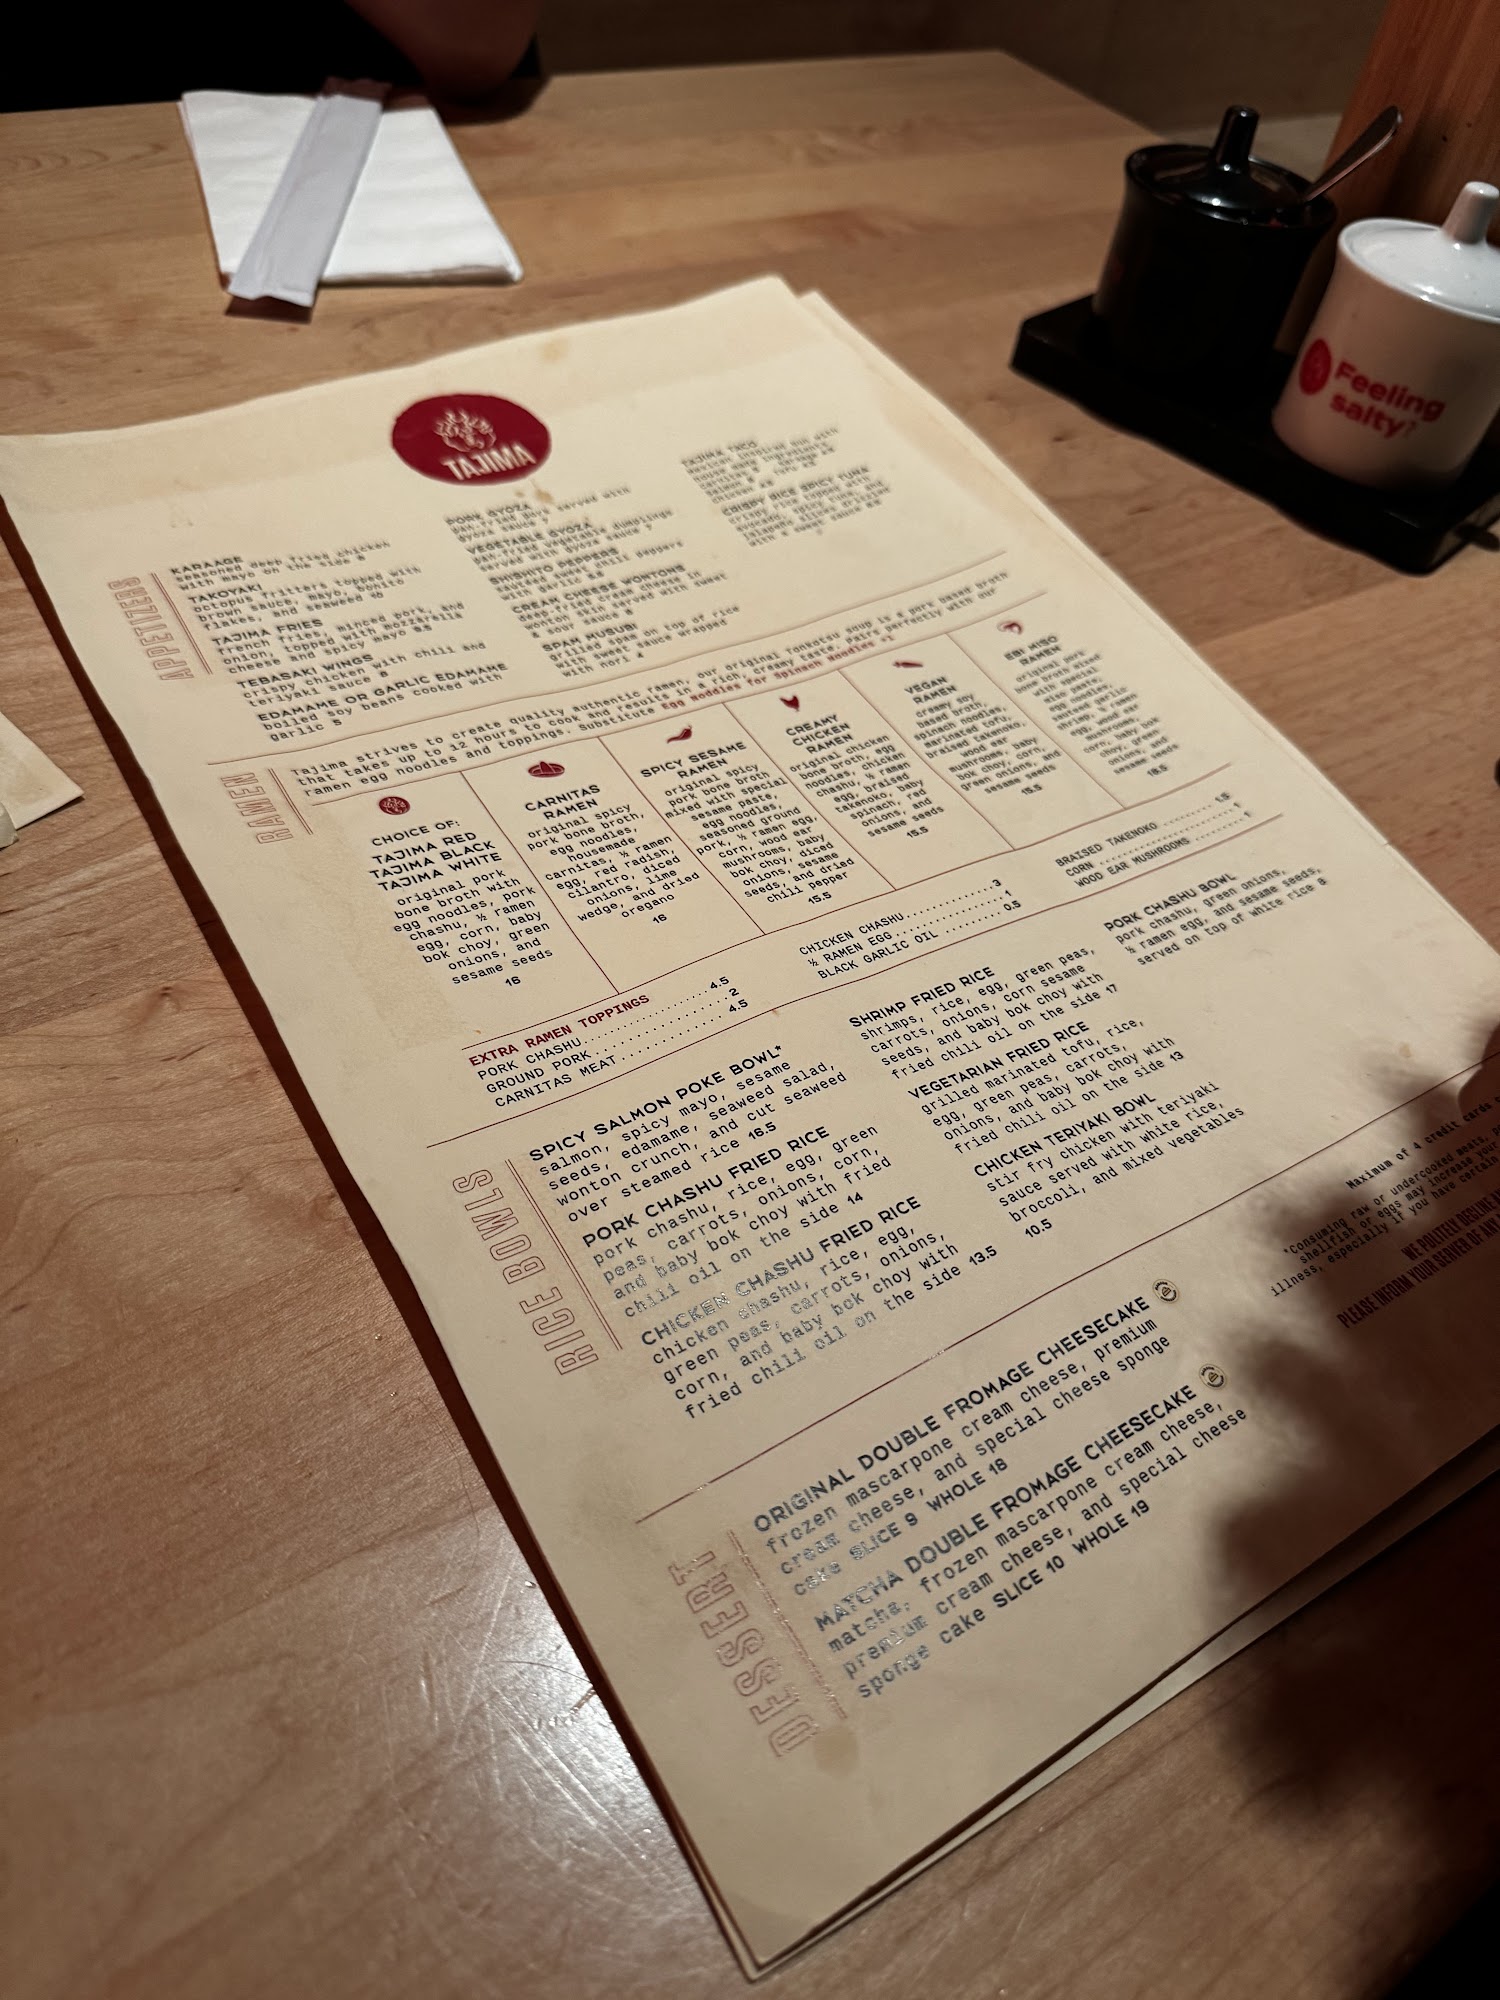 TAJIMA
Feeling
salty?
APPETIZERS
KARAAGE
seasoned deep fried chicken
with mayo on the side 8
TAKOYAKI
octopus fritters topped with
brown sauce, mayo, bonito
flakes, and seaweed 10
TAJIMA FRIES
french fries, minced pork, and
onion, topped with mozzarella
cheese and spicy mayo
TEBASAKI WINGS
crispy chicken with chili and
teriyaki sauce 8
EDAMAME OR GARLIC EDAMAME
boiled soy beans cooked with
garlic 5
PORK GYOZA
pan-fried pork served with
gyoza sauce 7
VEGETABLE GYOZA
pan-fried vegetable dumplings
served with gyoza sauce 7
SHISHITO PEPPERS
sauteed sweet chili peppers
with garlic
CREAM CHEESE WONTONS
deep-fried cream cheese in
wonton skin served with sweet
& sour sauce 8
SPAM MUSUBI
grilled spam on top of rice
with sweet sauce wrapped
with nori 4
TAJIMA TACO
CRISPY RICE SPICY TUNA
crispy rice topped with
avocado, spicy tuna, and
jalapeño slices drizzled
with a sweet sauce
RAMEN
Tajima strives to create quality authentic ramen, our original Tonkotsu soup is a pork based broth
that takes up to 12 hours to cook and results in a rich, creamy taste. Pairs perfectly with our
ramen egg noodles and toppings. Substitute Egg Noodles for Spinach Noodles +1
CHOICE OF:
TAJIMA RED
TAJIMA BLACK
TAJIMA WHITE
original pork
bone broth with
egg noodles, pork
chashu, ½ ramen
egg, corn, baby
bok choy, green
onions, and
sesame seeds
16
CARNITAS
RAMEN
original spicy
pork bone broth,
egg noodles,
housemade
carnitas, ½ ramen
egg, red radish,
cilantro, diced
onions, lime
wedge, and dried
oregano
16
SPICY SESAME
RAMEN
original spicy
pork bone broth
mixed with special
sesame paste,
egg noodles,
seasoned ground
pork, ½ ramen egg,
corn, wood ear
mushrooms, baby
bok choy, diced
onions, sesame
seeds, and dried
chili pepper
15.5
CREAMY
CHICKEN
RAMEN
original chicken
bone broth, egg
noodles, chicken
chashu, ½ ramen
egg, braised
takenoko, baby
spinach, red
onions, and
sesame seeds
15.5
VEGAN
RAMEN
creamy soy
based broth,
spinach noodles,
marinated tofu,
braised takenoko,
wood ear
mushrooms, baby
bok choy, corn,
green onions, and
sesame seeds
15.5
EBI MISO
RAMEN
original pork
bone broth mixed
with special
miso paste,
egg noodles,
seasoned garlic
shrimp, ½ ramen
egg, wood ear
mushrooms,
corn, baby bok
choy, green
onions, and
sesame seeds
EXTRA RAMEN TOPPINGS
PORK CHASHU..............4.5
GROUND PORK..............2
CARNITAS MEAT............4.5
CHICKEN CHASHU...........3
½ RAMEN EGG..............1
BLACK GARLIC OIL.........0.5
BRAISED TAKENOKO.........1.5
CORN.....................1
WOOD EAR MUSHROOMS.......1
RICE BOWLS
SPICY SALMON POKE BOWL*
salmon, spicy mayo, sesame
seeds, edamame, seaweed salad,
wonton crunch, and cut seaweed
over steamed rice 16.5
PORK CHASHU FRIED RICE
pork chashu, rice, egg, green
peas, carrots, onions, corn,
and baby bok choy with fried
chili oil on the side 14
CHICKEN CHASHU FRIED RICE
chicken chashu, rice, egg,
green peas, carrots, onions,
corn, and baby bok choy with
fried chili oil on the side 13.5
SHRIMP FRIED RICE
shrimps, rice, egg, green peas,
carrots, onions, corn sesame
seeds, and baby bok choy with
fried chili oil on the side 17
VEGETARIAN FRIED RICE
grilled marinated tofu, rice,
egg, green peas, carrots,
onions, and baby bok choy with
fried chili oil on the side 13
CHICKEN TERIYAKI BOWL
stir fry chicken with teriyaki
sauce served with white rice,
broccoli, and mixed vegetables
10.5
PORK CHASHU BOWL
pork chashu, green onions,
½ ramen egg, and sesame seeds,
served on top of white rice 8
DESSERT
ORIGINAL DOUBLE FROMAGE CHEESECAKE
frozen mascarpone cream cheese, premium
cream cheese, and special cheese sponge
cake SLICE 9 WHOLE 18
MATCHA DOUBLE FROMAGE CHEESECAKE
matcha, frozen mascarpone cream cheese,
premium cream cheese, and special cheese
sponge cake SLICE 10 WHOLE 19
Maximum of 4 credit cards
*Consuming raw or undercooked meats,
shellfish or eggs may increase your
illness, especially if you have certain
WE POLITELY DECLINE
PLEASE INFORM YOUR SERVER OF ANY